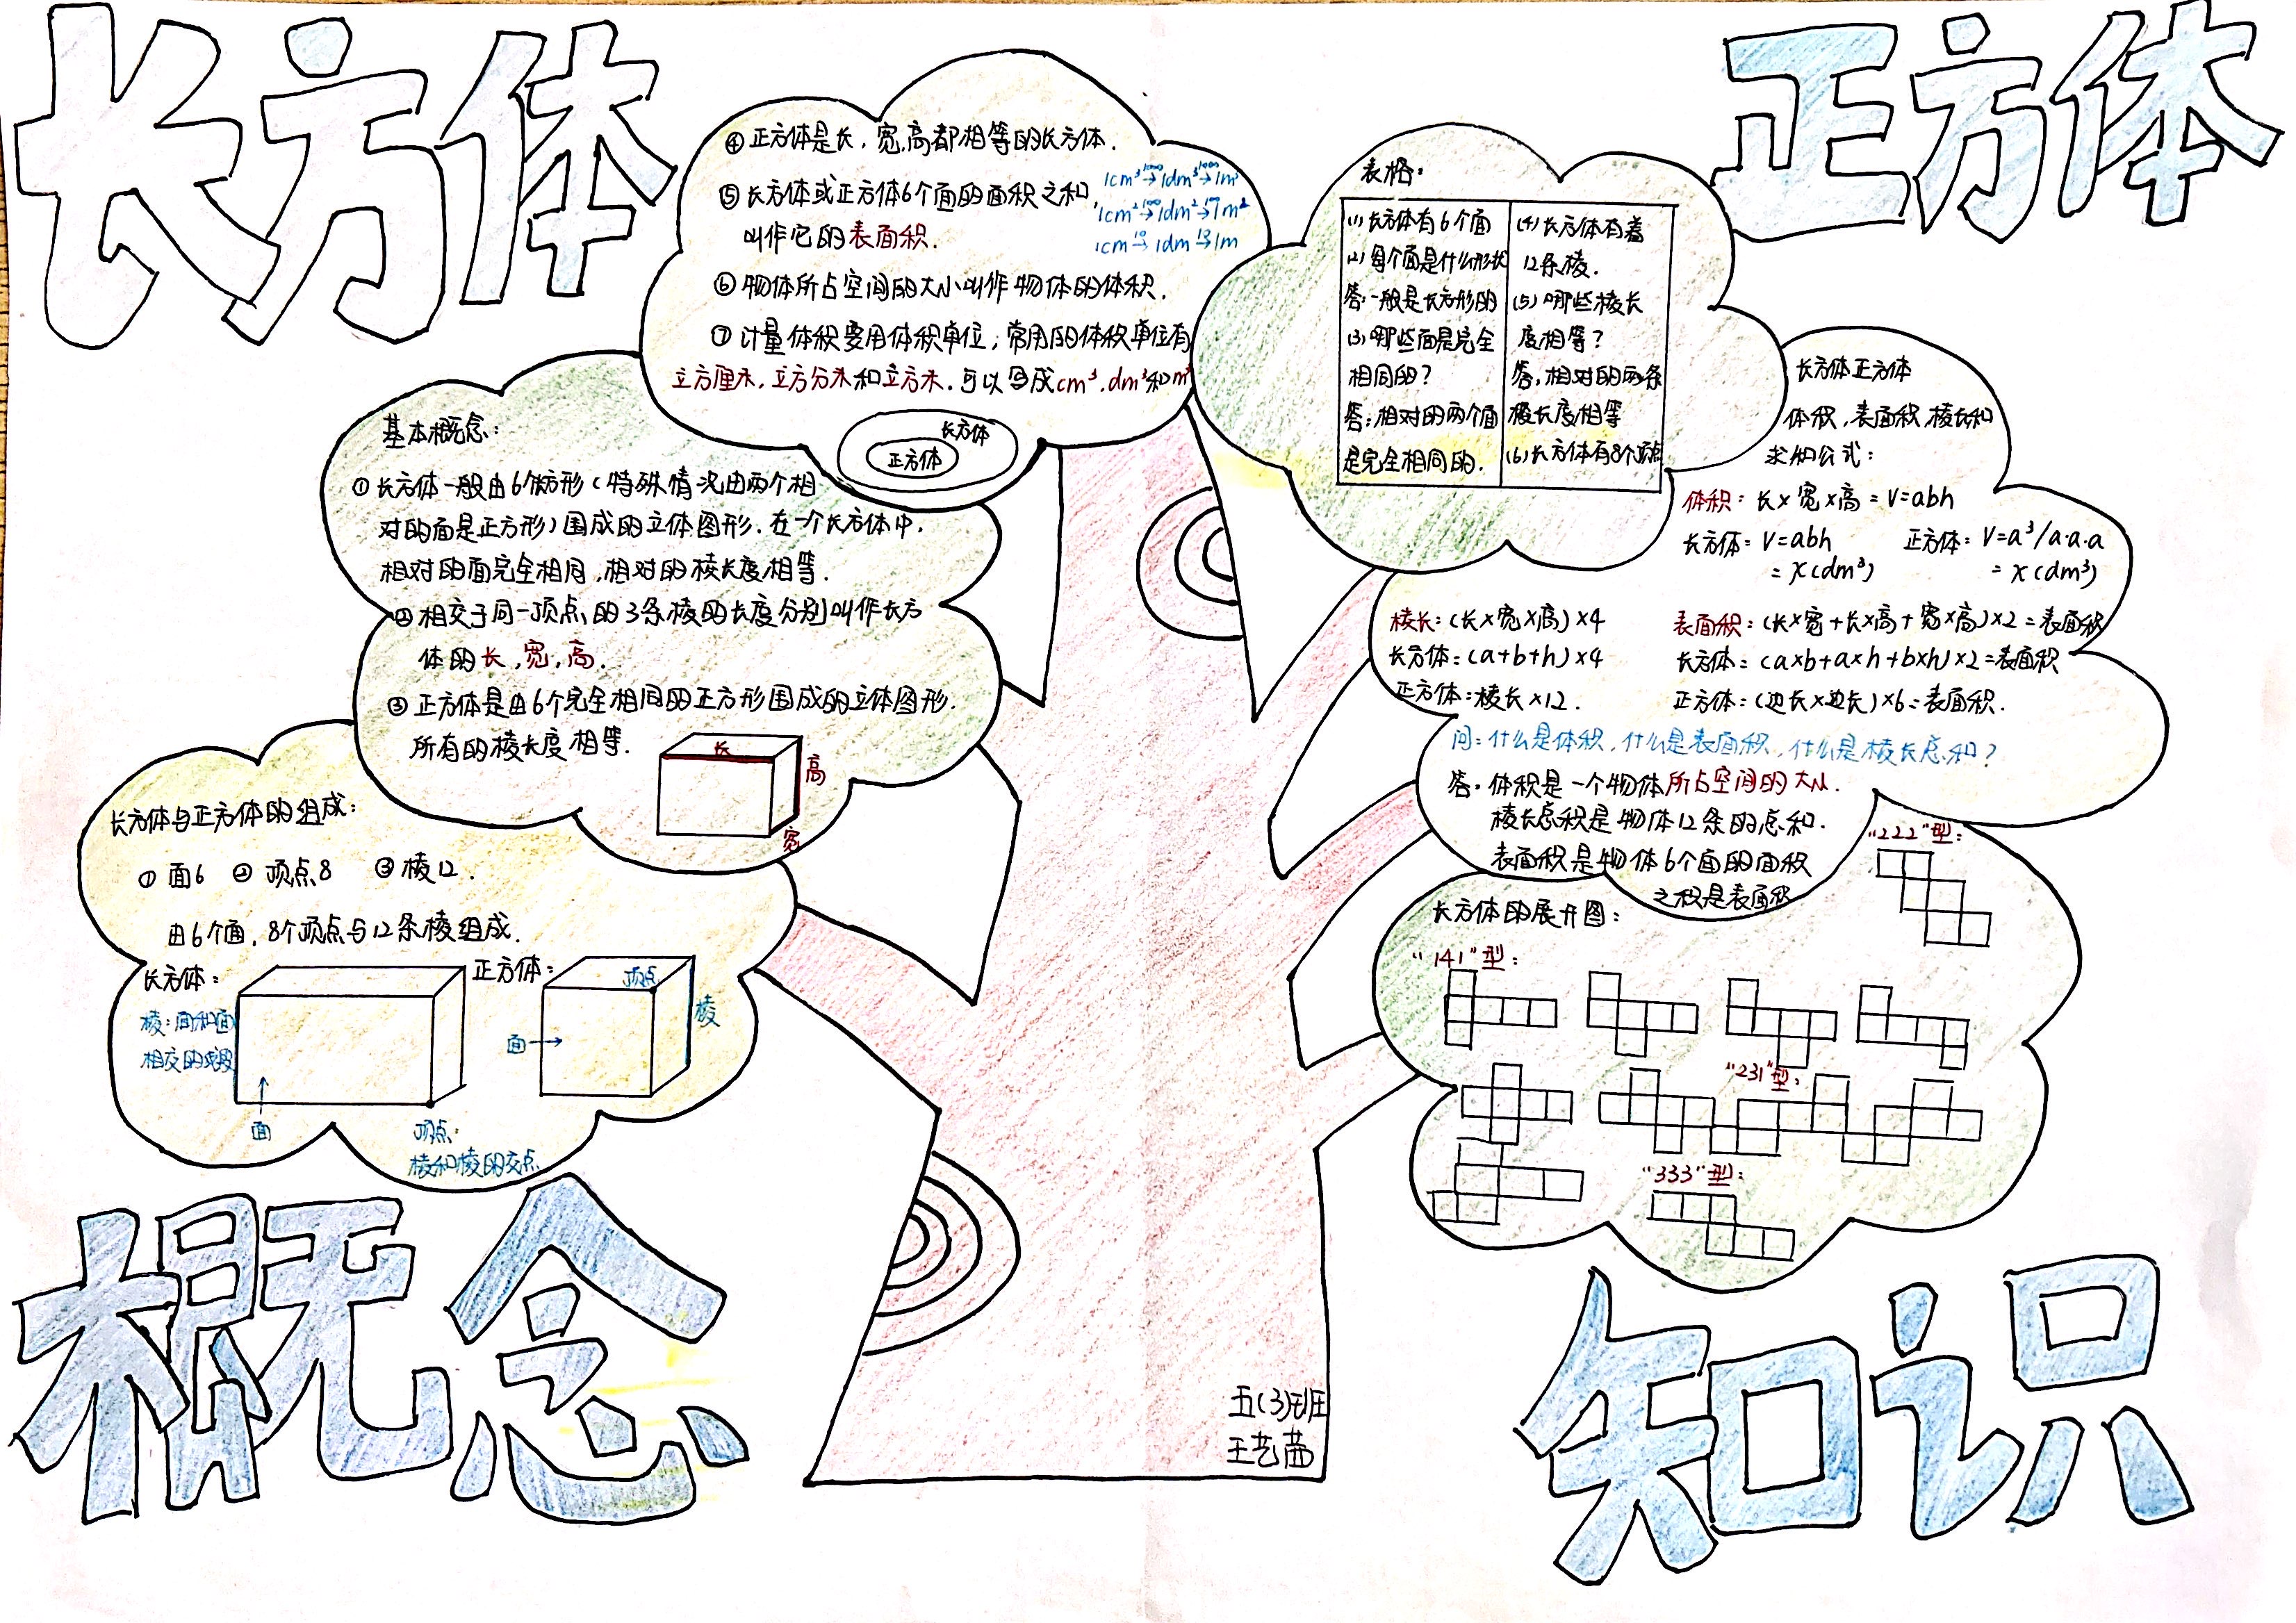 长方体
正方体
④正方体是长,宽,高都相等的长方体.
⑤长方体或正方体6个面的面积之和,
叫作它的表面积.
1cm³→1000 1dm³→1000 1m³
1cm²→100 1dm²→100 1m²
1cm→10 1dm→10 1m
⑥物体所占空间的大小叫作物体的体积.
⑦计量体积要用体积单位;常用的体积单位有
立方厘米,立方分米和立方米.可以写成cm³.dm³和m³
长方体
正方体
基本概念:
①长方体一般由6个长方形(特殊情况由两个相
对的面是正方形)围成的立体图形.在一个长方体中,
相对的面完全相同,相对的棱长度相等.
②相交于同一顶点的3条棱的长度分别叫作长方
体的长,宽,高.
③正方体是由6个完全相同的正方形围成的立体图形.
所有的棱长度相等.
长
高
宽
长方体与正方体的组成:
①面6 ②顶点8 ③棱12.
由6个面,8个顶点与12条棱组成.
长方体:
棱:面和面
相交的线段
面
顶点:
棱和棱的交点
正方体:
顶点
棱
面→
表格:
(1)长方体有6个面
(2)每个面是什么形状
答:一般是长方形的
(3)哪些面是完全
相同的?
答:相对的两个面
是完全相同的.
(4)长方体有着
12条棱.
(5)哪些棱长
度相等?
答,相对的两条
棱长度相等
(6)长方体有8个顶点
长方体正方体
体积,表面积,棱长和
求知公式:
体积:长×宽×高=V=abh
长方体:V=abh
=x(dm³)
正方体:V=a³/a·a·a
=x(dm³)
棱长:(长×宽×高)×4
长方体:(a+b+h)×4
正方体:棱长×12.
表面积:(长×宽+长×高+宽×高)×2=表面积
长方体:(a×b+a×h+b×h)×2=表面积
正方体:(边长×边长)×6=表面积.
问:什么是体积,什么是表面积,什么是棱长总和?
答.体积是一个物体所占空间的大小.
棱长总积是物体12条的总和.
表面积是物体6个面的面积
之积是表面积
长方体的展开图:
"222"型:
"141"型:
"231"型:
"333"型:
概念
知识
五(3)班
王艺茜